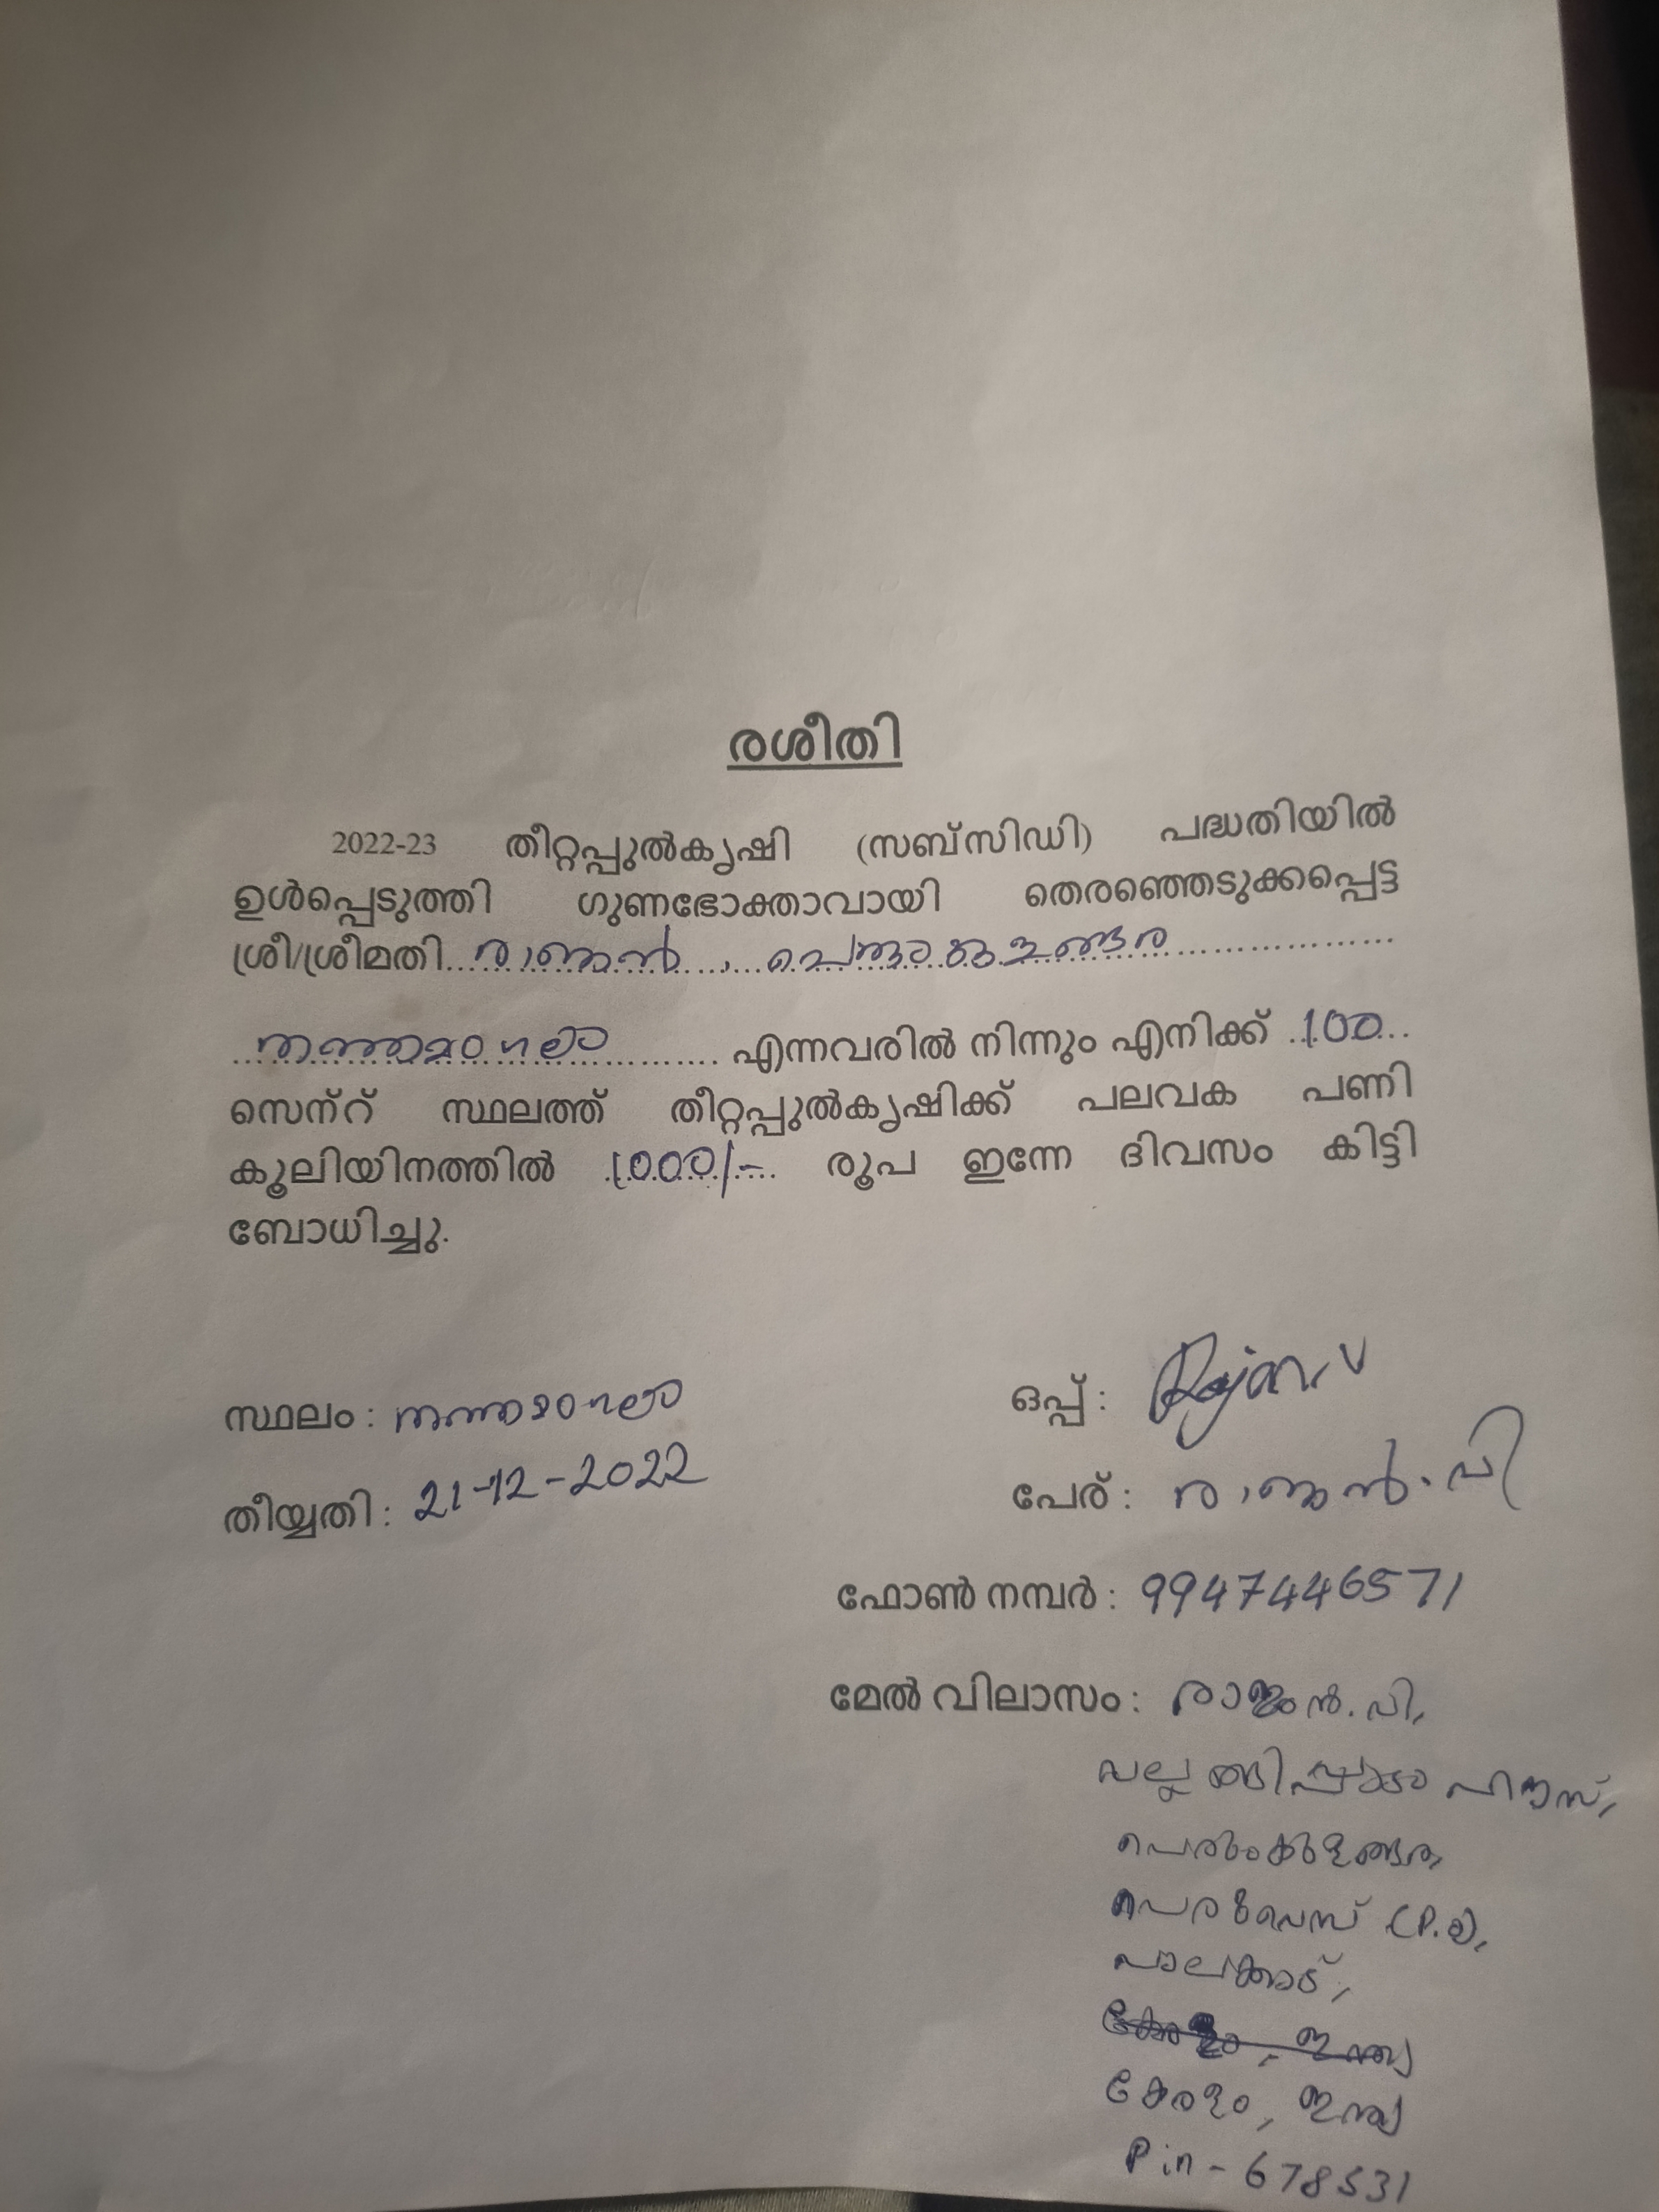 രശീതി
2022-23 തീറ്റപ്പുൽകൃഷി (സബ്സിഡി) പദ്ധതിയിൽ
ഉൾപ്പെടുത്തി ഗുണഭോക്താവായി തെരഞ്ഞെടുക്കപ്പെട്ട
ശ്രീ/ശ്രീമതി രാജൻ, പെരുംകുളങ്ങര
തത്തമംഗലം എന്നവരിൽ നിന്നും എനിക്ക് 100
സെന്റ് സ്ഥലത്ത് തീറ്റപ്പുൽകൃഷിക്ക് പലവക പണി
കൂലിയിനത്തിൽ 1000/- രൂപ ഇന്നേ ദിവസം കിട്ടി
ബോധിച്ചു.
സ്ഥലം : തത്തമംഗലം
ഒപ്പ് : Rajan. V
തീയ്യതി : 21-12-2022
പേര് : രാജൻ. വി
ഫോൺ നമ്പർ : 9947446571
മേൽ വിലാസം : രാജൻ. വി,
ഹൗസ്,
പെരുംകുളങ്ങര,
(P.O),
പാലക്കാട്,
കേരളം, ഇന്ത്യ
കേരളം, ഇന്ത്യ
Pin - 678531